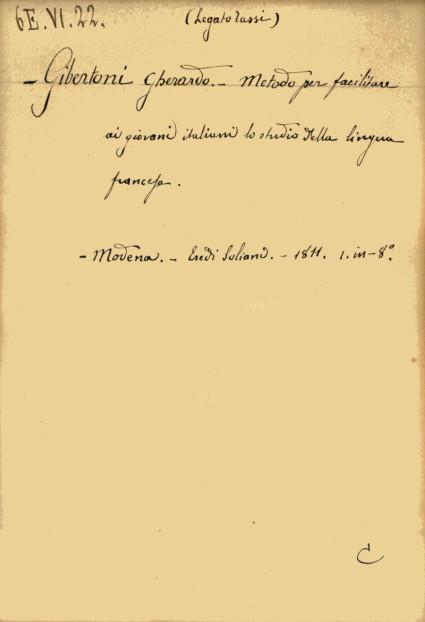 6E.VI.22.
(Legato Tassi)
- Gibertoni Gherardo. - Metodo per facilitare
ai giovani italiani lo studio della lingua
francese.
- Modena. - Eredi Soliani. - 1811. 1. in-8°.
C